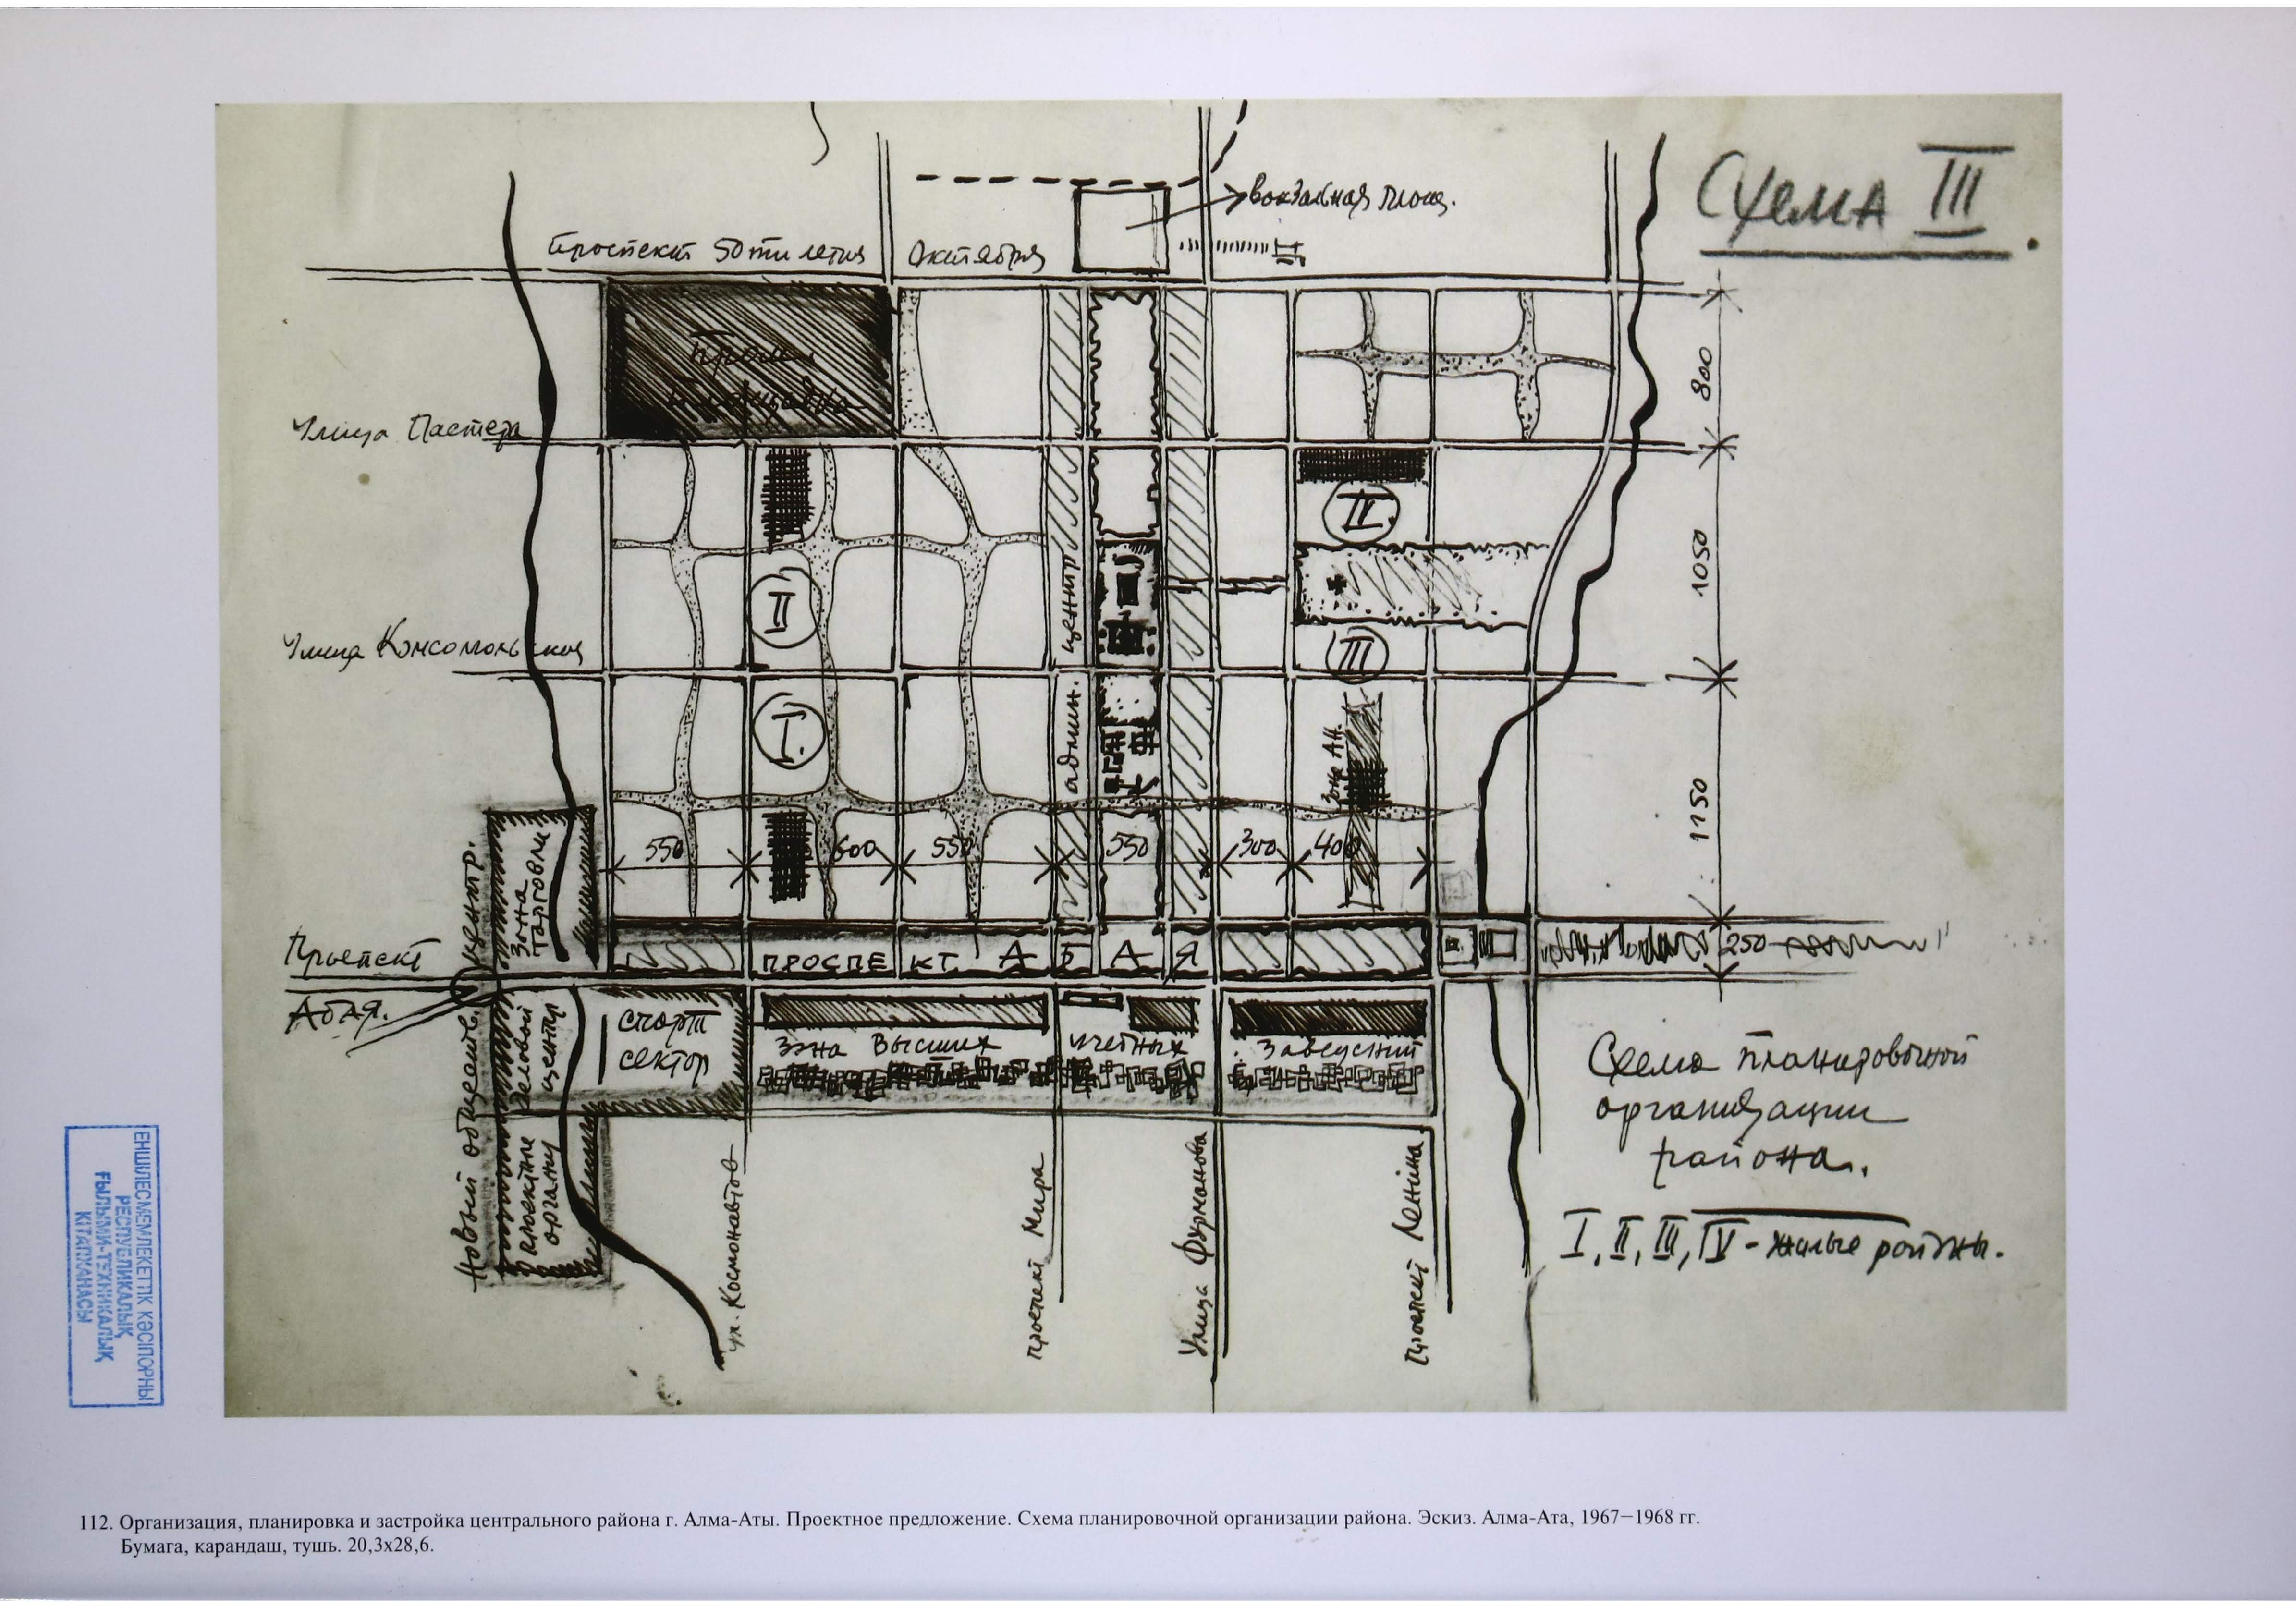 Схема III.
вокзальная площ.
Проспект 50ти летия Октября
пром.
площадка
Улица Пастера
800
II.
1050
центр
II
III
Улица Комсомольская
I.
админ.
зона АН.
1150
550 600 550 550 300 400
зона
торговли
Новый обществ. центр.
Проспект
Абая.
ПРОСПЕКТ АБАЯ
250
деловой
центр
спорт
сектор
Зона Высших учебных Заведений
проектные
органы
ул. Космонавтов
проспект Мира
Улица Фурманова
проспект Ленина
Схема планировочной
организации
района.
I, II, III, IV - жилые районы.
ЕНШІЛЕСМЕМЛЕКЕТТІК КӘСІПОРНЫ
РЕСПУБЛИКАЛЫҚ
ҒЫЛЫМИ-ТЕХНИКАЛЫҚ
КІТАПХАНАСЫ
112. Организация, планировка и застройка центрального района г. Алма-Аты. Проектное предложение. Схема планировочной организации района. Эскиз. Алма-Ата, 1967–1968 гг.
Бумага, карандаш, тушь. 20,3х28,6.